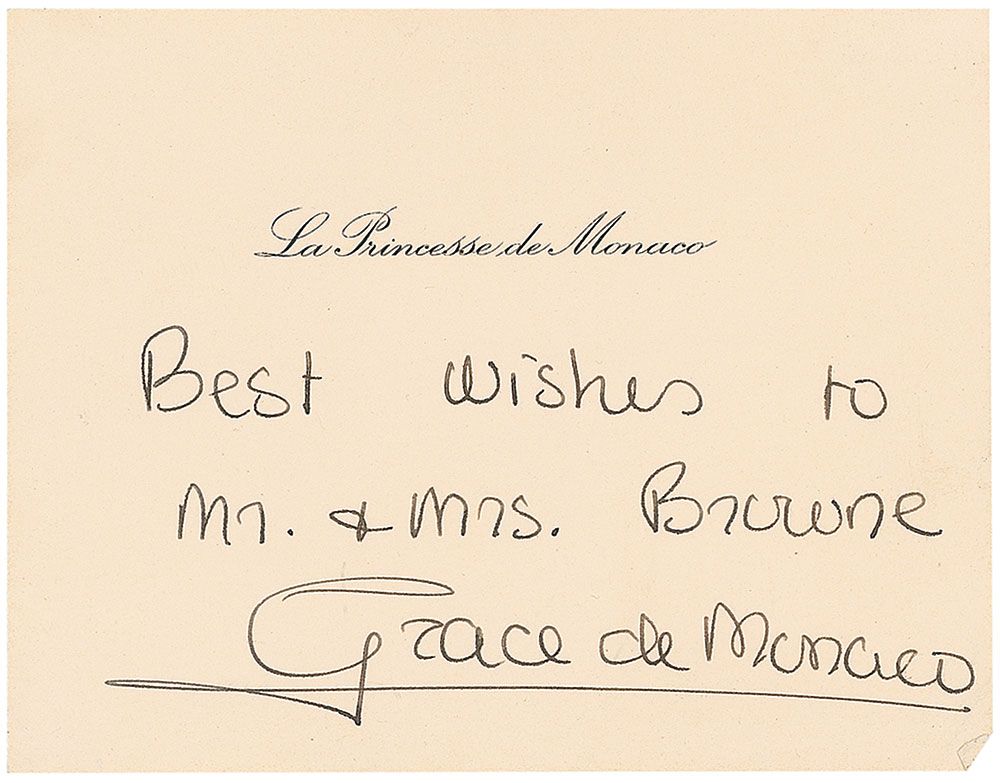 La Princesse de Monaco
Best wishes to
Mr. & Mrs. Browne
Grace de Monaco